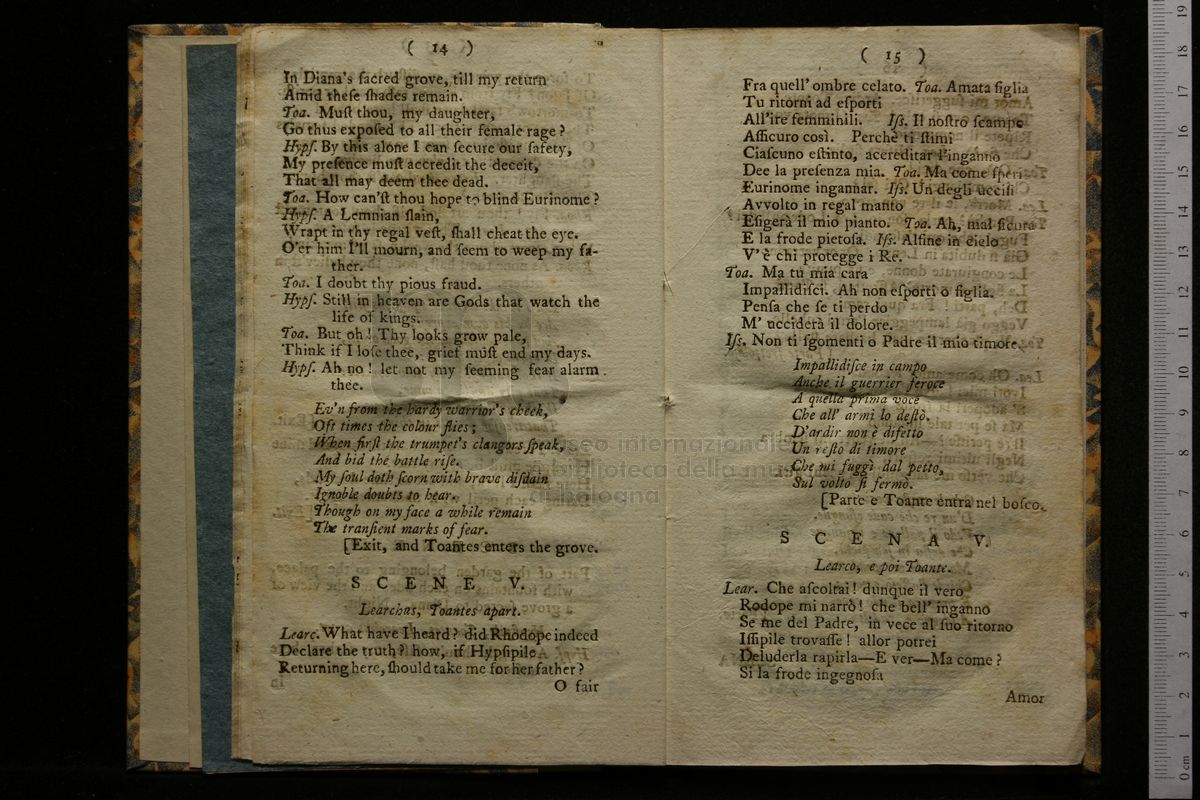 ( 14 )
In Diana's ſacred grove, till my return
Amid theſe ſhades remain.
Toa. Muſt thou, my daughter,
Go thus expoſed to all their female rage ?
Hypſ. By this alone I can ſecure our ſafety,
My preſence muſt accredit the deceit,
That all may deem thee dead.
Toa. How can'ſt thou hope to blind Eurinome ?
Hypſ. A Lemnian ſlain,
Wrapt in thy regal veſt, ſhall cheat the eye.
O'er him I'll mourn, and ſeem to weep my fa-
ther.
Toa. I doubt thy pious fraud.
Hypſ. Still in heaven are Gods that watch the
life of kings.
Toa. But oh ! Thy looks grow pale,
Think if I loſe thee, grief muſt end my days.
Hypſ. Ah no ! let not my ſeeming fear alarm
thee.
Ev'n from the hardy warrior's cheek,
Oft times the colour flies ;
When firſt the trumpet's clangors ſpeak,
And bid the battle riſe.
My ſoul doth ſcorn with brave diſdain
Ignoble doubts to hear.
Though on my face a while remain
The tranſient marks of fear.
[Exit, and Toantes enters the grove.
SCENE V.
Learchus, Toantes apart.
Learc. What have I heard ? did Rhodope indeed
Declare the truth ? how, if Hypſipile
Returning here, ſhould take me for her father ?
O fair
( 15 )
Fra quell' ombre celato. Toa. Amata figlia
Tu ritorni ad eſporti
All'ire femminili. Iſs. Il noſtro ſcampo
Aſſicuro così. Perchè ti ſtimi
Ciaſcuno eſtinto, accreditar l'inganno
Dee la preſenza mia. Toa. Ma come ſperi
Eurinome ingannar. Iſs. Un degli ucciſi
Avvolto in regal manto
Eſigerà il mio pianto. Toa. Ah, mal ſicura
E la frode pietoſa. Iſs. Alfine in cielo
V' è chi protegge i Re.
Toa. Ma tu mia cara
Impallidiſci. Ah non eſporti o figlia.
Penſa che ſe ti perdo
M' ucciderà il dolore.
Iſs. Non ti ſgomenti o Padre il mio timore.
Impallidiſce in campo
Anche il guerrier feroce
A quella prima voce
Che all' armi lo deſtò.
D'ardir non è difetto
Un reſto di timore
Che mi fuggì dal petto,
Sul volto ſi fermò.
[Parte e Toante entra nel boſco.
SCENA V.
Learco, e poi Toante.
Lear. Che aſcoltai ! dunque il vero
Rodope mi narrò ! che bell' inganno
Se me del Padre, in vece al ſuo ritorno
Iſſipile trovaſſe ! allor potrei
Deluderla rapirla—E ver—Ma come ?
Si la frode ingegnoſa
Amor
museo internazionale
e biblioteca della musica
di bologna